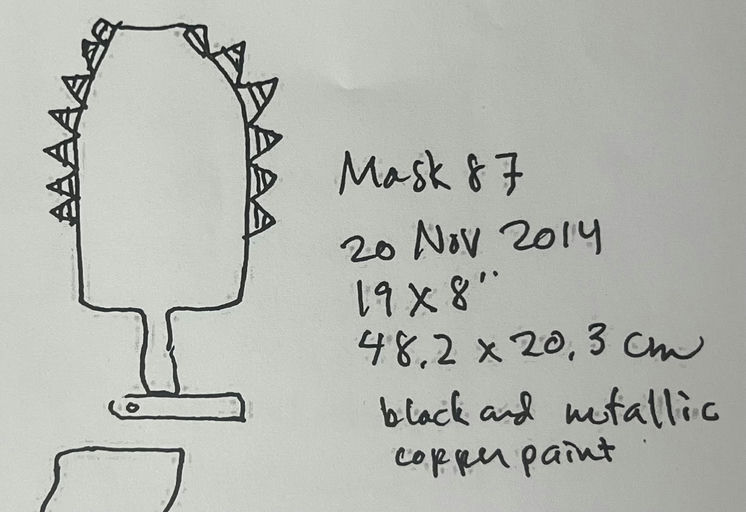 Mask 87
20 Nov 2014
19 x 8"
48.2 x 20.3 cm
black and metallic
copper paint